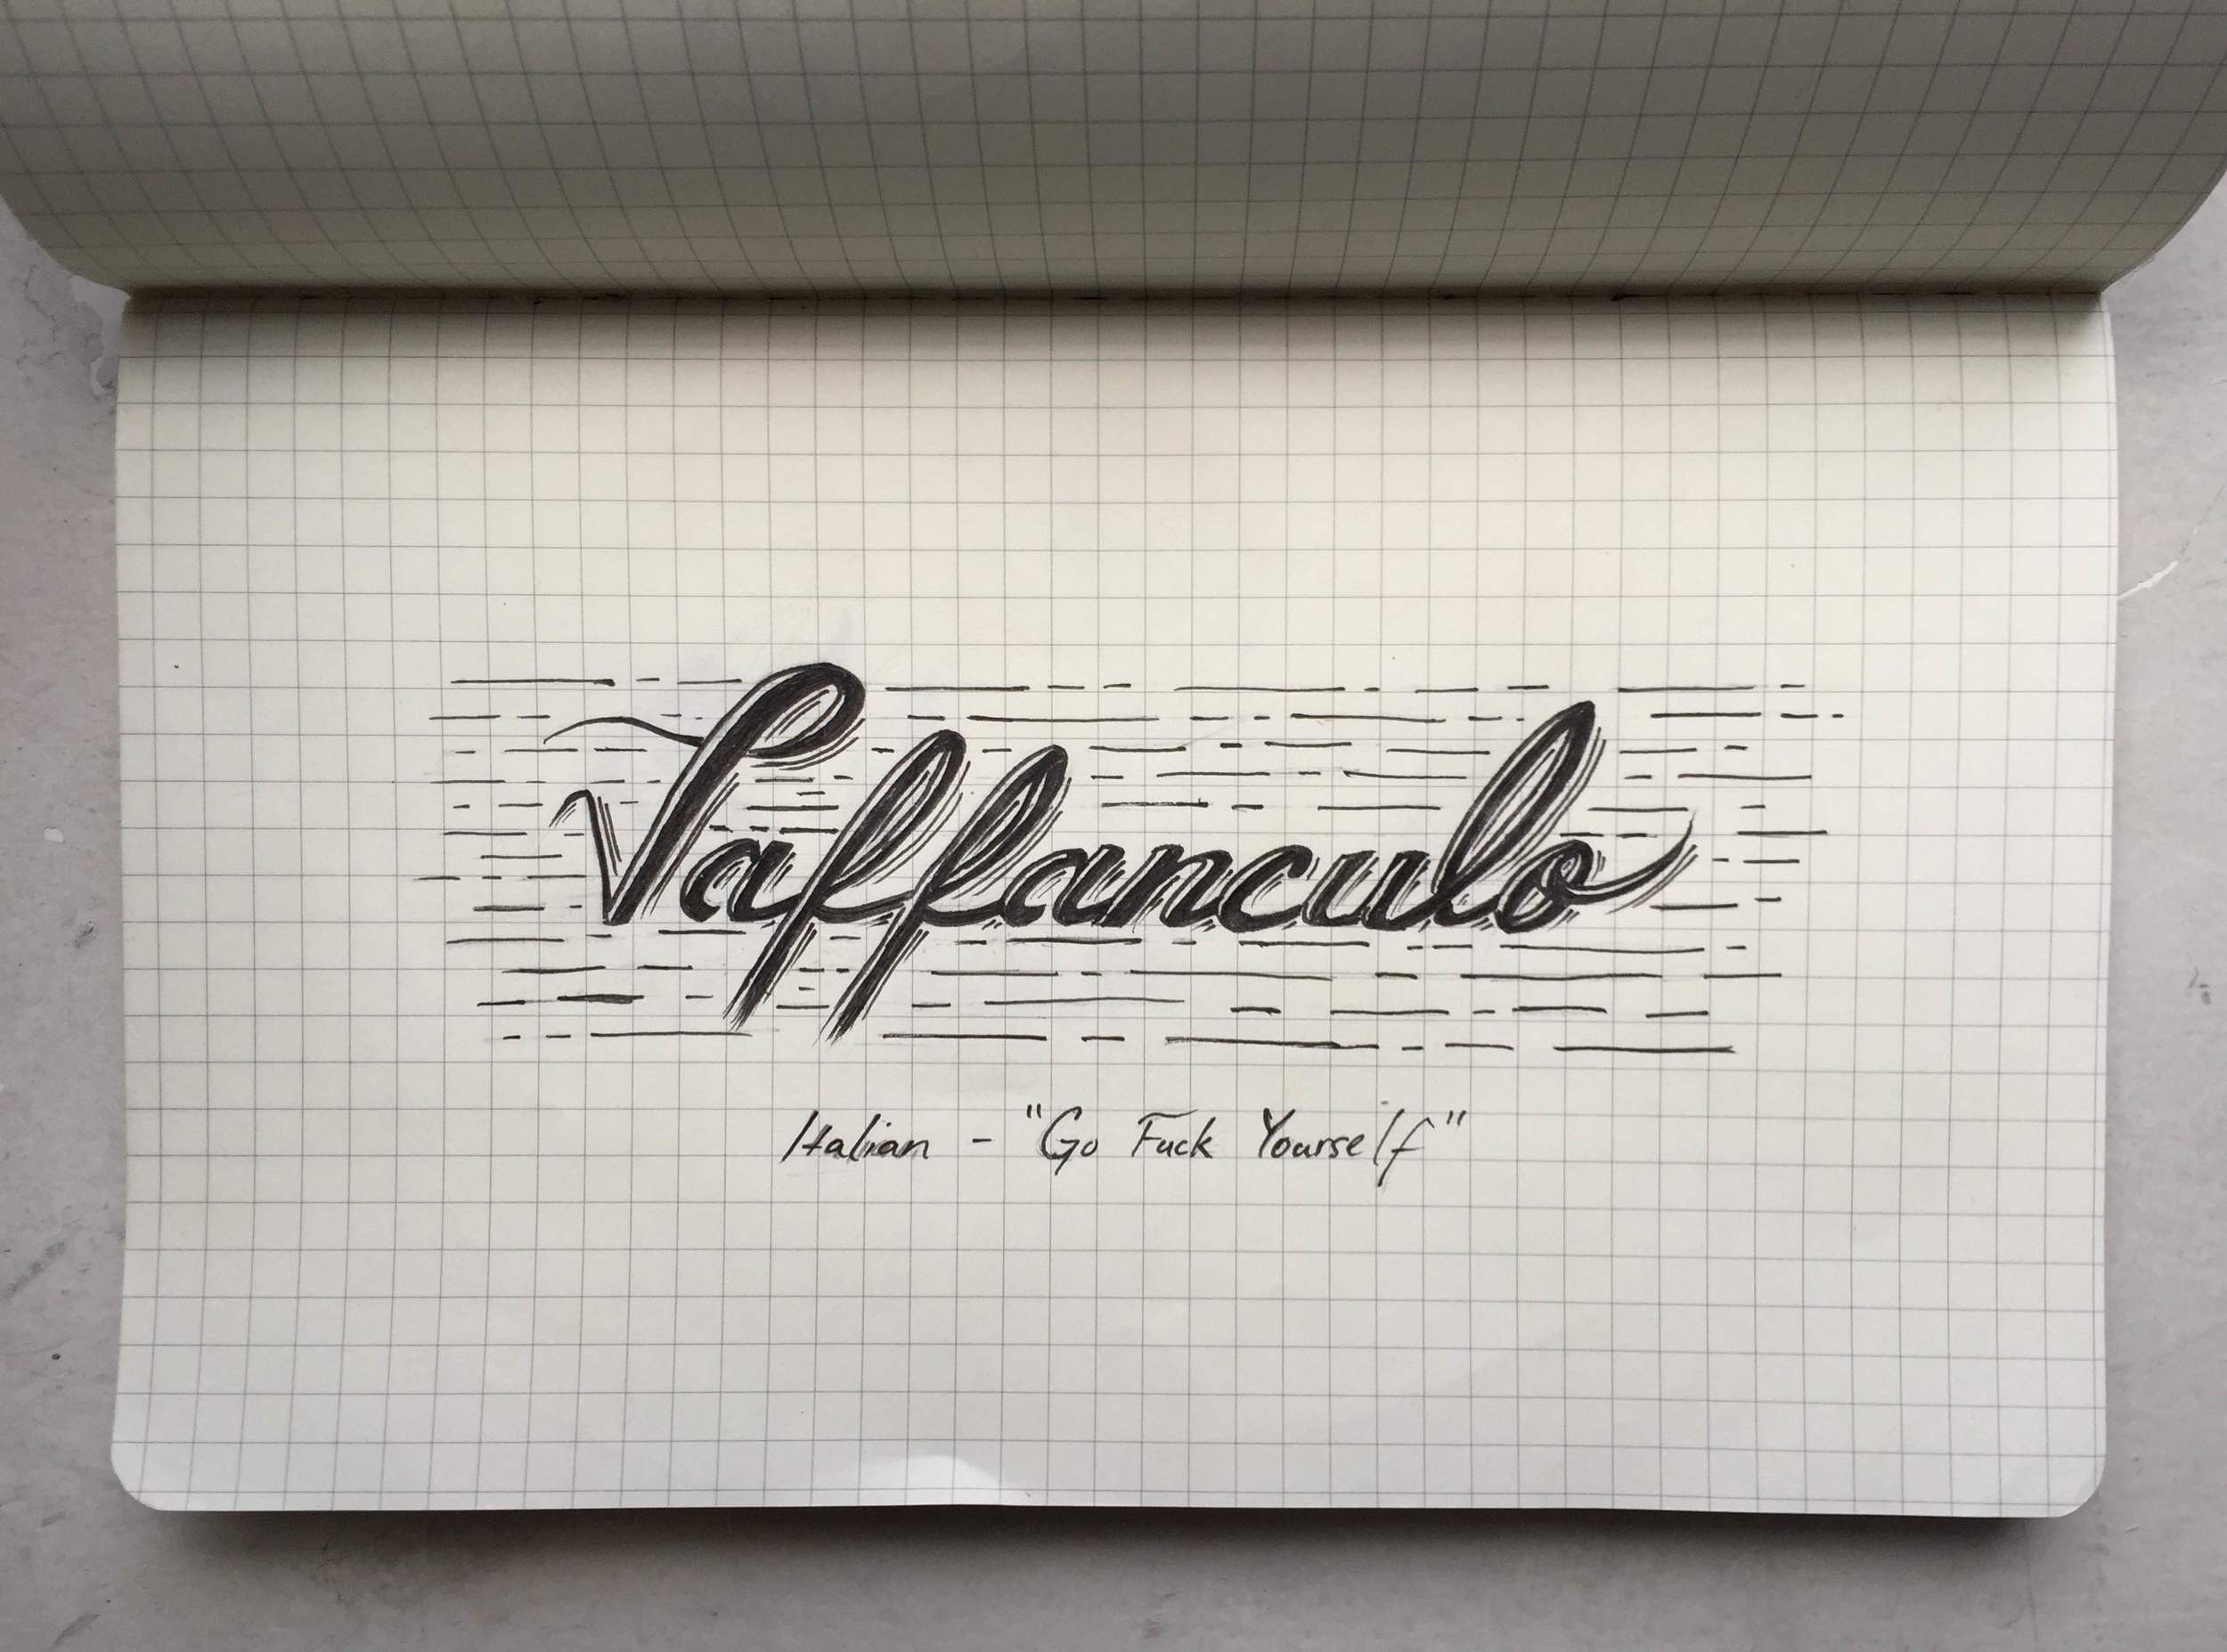 Vaffanculo
Italian - "Go Fuck Yourself"